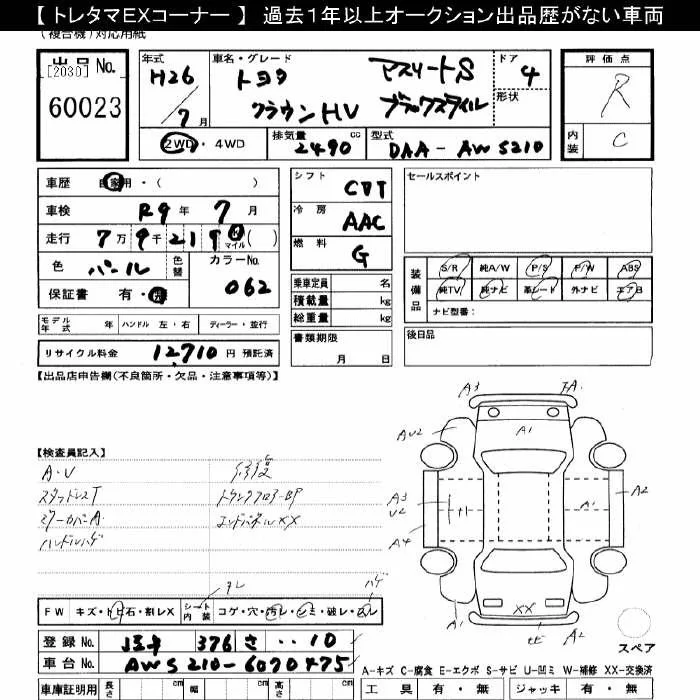 【 トレタマEXコーナー 】 過去1年以上オークション出品歴がない車両
(複合機)対応用紙
出品 No.
[2030]
60023
年式
H26/7月
車名・グレード
トヨタ
クラウンHV
アスリートS
ブラックスタイル
ドア
4
形状
評価点
R
内装
C
2WD・4WD
排気量
2490 cc
型式
DAA-AWS210
車歴 自家用・( )
車検 R9年 7月
走行 7万9千219 マイル( )
色 パール
色替
カラーNo. 062
保証書 有・無
シフト CVT
冷房 AAC
燃料 G
セールスポイント
装備品
S/R 純A/W P/S P/W ABS
純TV 純ナビ 革シート 外ナビ エアB
ナビ型番:
乗車定員 名
積載量 kg
総重量 kg
モデル年式 年 ハンドル 左・右 ディーラー・並行
リサイクル料金 12,710 円 預託済
書類期限
月 日
後日品
【出品店申告欄(不良箇所・欠品・注意事項等)】
【検査員記入】
A・U
スタッドレスT
ミラーカバーA
ハンドルハゲ
修復
トランクフロアーBP
エンドパネルXX
A3
A1
AU2
A3
U2
A4
A1
A2
A1
XX
A2
スペア
FW キズ・トビ石・割レX
シート内装 コゲ・穴・汚レ・シミ・破レ・スレ
スレ
ハゲ
登録 No. 376 さ ‥10
車台 No. AWS210-6070475
A-キズ C-腐食 E-エクボ S-サビ U-凹ミ W-補修 XX-交換済
車庫証明用 長さ cm 幅 cm 高さ cm
工具 有・無 ジャッキ 有・無